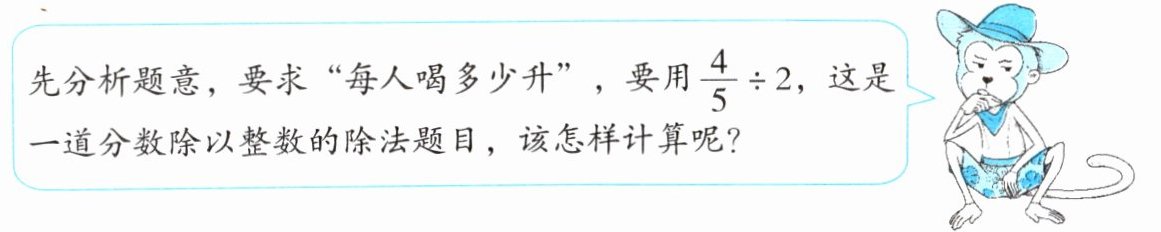 先分析题意，要求“每人喝多少升”，要用 4/5 ÷ 2，这是
一道分数除以整数的除法题目，该怎样计算呢？